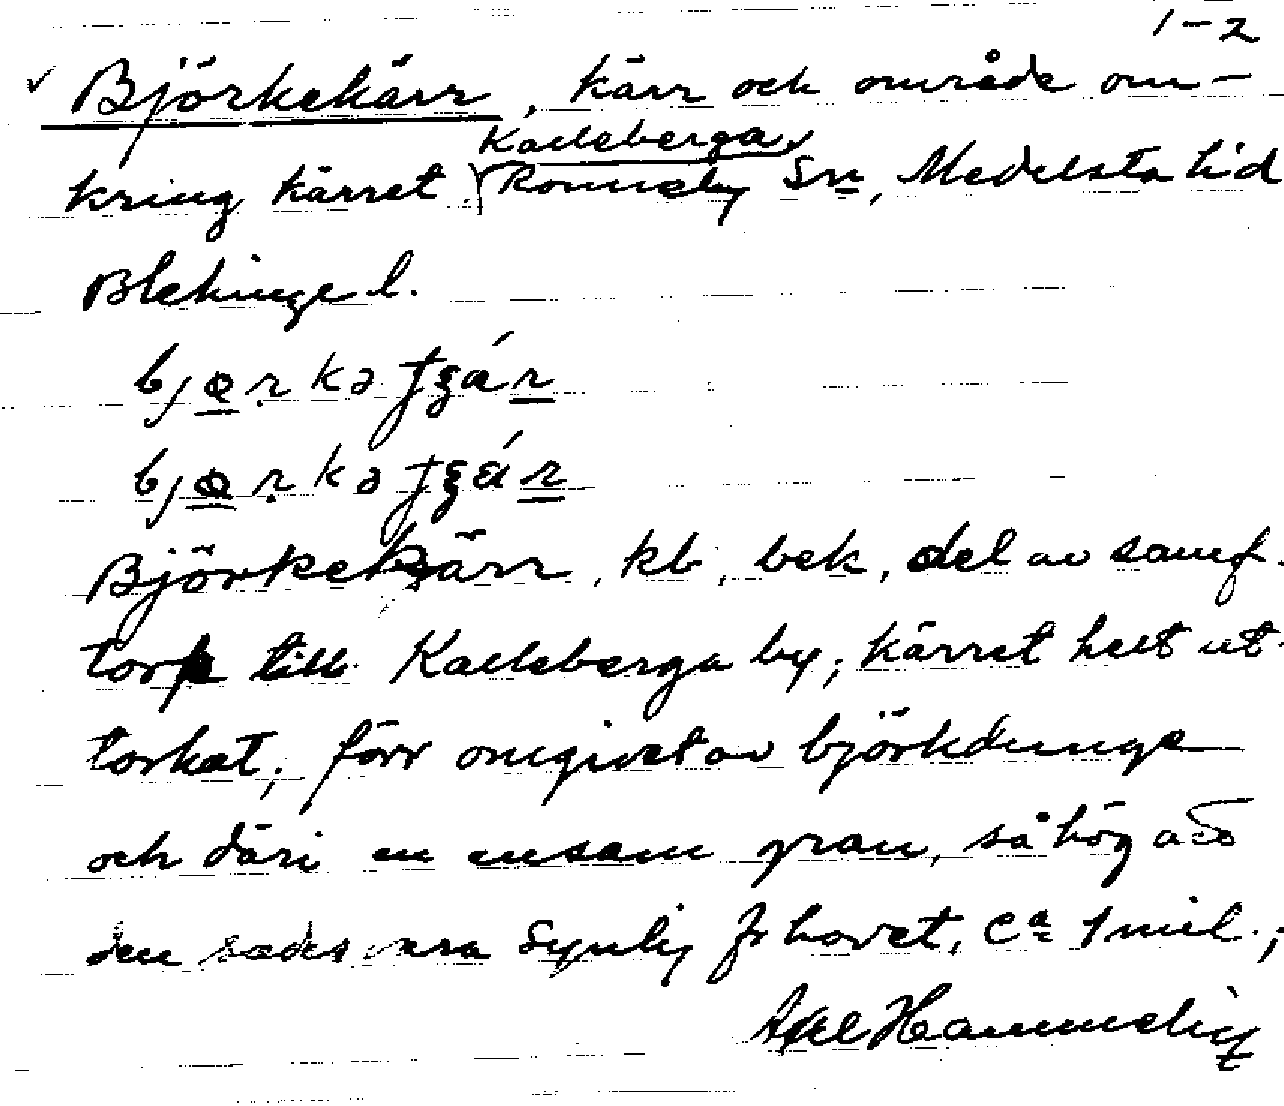 1-2
Björkekärr, kärr och område om-
Kalleberga
kring kärret. Ronneby Sn, Medelsta hd
Blekinge l.
Björkekärr, kb, bek, del av samf.
torp till Kalleberga by; kärret helt ut-
torkat; förr omgivet av björkdunge
och däri en ensam gran, så hög att
den sades vara synlig fr havet, ca 1 mil.;
Axel